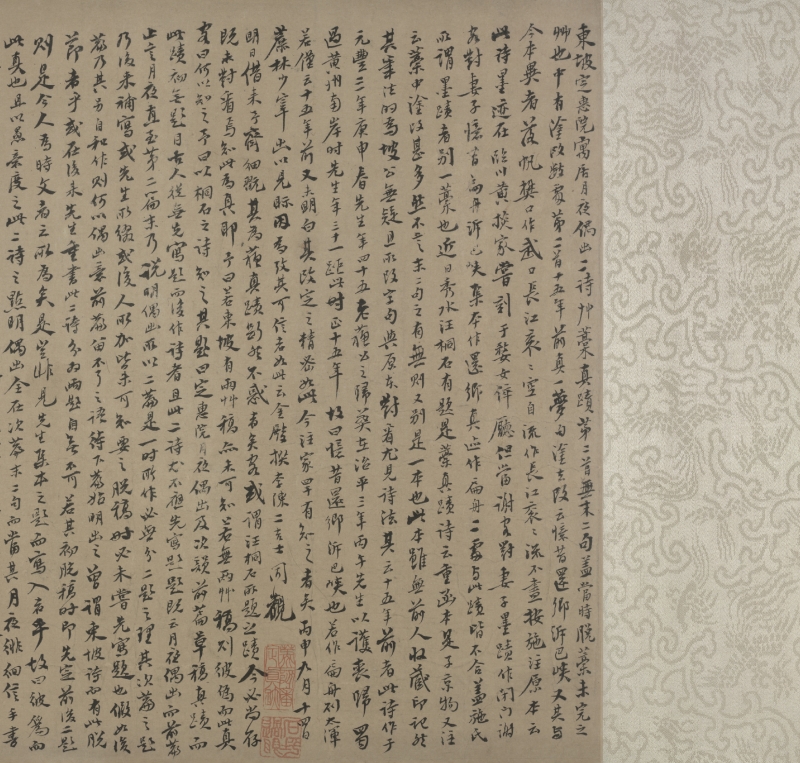 東坡定惠院寓居月夜偶出二詩艸藁真蹟第二首無末二句蓋當時脫藁未完之
艸也中有塗改數處第二首十五年前真一夢句塗去改云憶昔還鄉泝巴峽又其與
今本異者落帆樊口作武口長江袞袞空自流作長江袞袞流不盡按施注原本云
此詩墨迹在臨川黃掞家嘗刻于婺女倅廳但當謝客對妻子墨蹟作閉門謝
客對妻子憶昔扁舟泝巴峽集本作還鄉真迹作扁舟二處与此蹟皆不合蓋施氏
所謂墨蹟者別一藁也近日秀水汪桐石有題是藁真蹟詩云重函本是子京物又注
云藁中塗改甚多然不言末二句之有無則又別是一本也此本雖無前人收藏印記然
其筆法的為坡公無疑且所改字句與原本對看尤見詩法其云十五年前者此詩作于
元豐三年庚申春先生年四十五老蘇公之歸葬在治平三年丙午先生以護喪歸蜀
過黃州南岸時先生年三十一距此時正十五年故曰憶昔還鄉泝巴峽也若作扁舟則太渾
若僅云十五年前又未明白其改定之精密如此今注家罕有知之者矣丙申九月十四日
蔗林少宰出以見眎因為攷其可信者如此云金壇李陳二吉士同觀
明日借來予齋細觀其為蘇真蹟斷然不惑者矣客或謂汪桐石所題之蹟今必尚存
既未對看焉知此為真耶予曰若東坡有兩艸稿亦未可知若無兩艸稿則彼偽而此真
客曰何以知之予曰以桐石之詩知之其題曰定惠院月夜偶出及次韻前篇草稿真蹟而
此蹟初無題目古人從無先寫題而後作詩者且此二詩尤不應先寫題題既云月夜偶出而前篇
止言月夜直至第二篇末乃說明偶出所以二篇是一時所作必無分二題之理其次篇之題
乃後來補寫或先生所綴或後人所加皆未可知要之脫稿時必未嘗先寫題也假如後
篇乃其另自和作則何以偶出意前篇留不了之語待下篇始明出之曾謂東坡詩而有此脫
節者乎或在後來先生重書此二詩分為兩題自無不可若其初脫稿時即先定前後二題
則是今人為時文者之所為矣是豈非見先生集本之題而寫入者乎故曰彼偽而
此真也且以愚意度之此二詩之點明偶出全在次篇末二句而當其月夜徘徊信手書